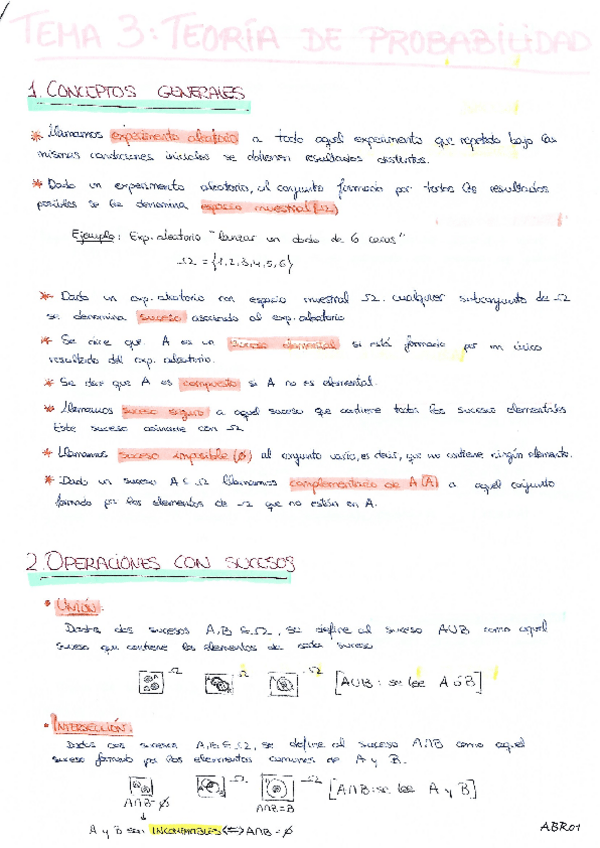 TEMA 3: TEORÍA DE PROBABILIDAD
1. CONCEPTOS GENERALES
* Llamamos experimento aleatorio a todo aquel experimento que repetido bajo las
mismas condiciones iniciales se obtienen resultados distintos.
* Dado un experimento aleatorio, al conjunto formado por todos los resultados
posibles se le denomina espacio muestral (Ω)
Ejemplo: Exp. aleatorio "lanzar un dado de 6 caras"
Ω = {1,2,3,4,5,6}
* Dado un exp. aleatorio con espacio muestral Ω. cualquier subconjunto de Ω
se denomina suceso asociado al exp. aleatorio
* Se dice que A es un suceso elemental si está formado por un único
resultado del exp. aleatorio.
* Se dice que A es compuesto si A no es elemental.
* Llamamos suceso seguro a aquel suceso que contiene todos los sucesos elementales
Este suceso coincide con Ω
* Llamamos suceso imposible (∅) al conjunto vacío, es decir, que no contiene ningún elemento.
* Dado un suceso A ⊂ Ω llamamos complementado de A (A) a aquel conjunto
formado por los elementos de Ω que no están en A.
2. OPERACIONES CON SUCESOS
• UNIÓN:
Dados dos sucesos A, B ⊆ Ω, se define al suceso A∪B como aquel
suceso que contiene los elementos de cada suceso
Ω Ω Ω [A∪B: se lee A ó B]
• INTERSECCIÓN:
Dados dos sucesos A, B ⊆ Ω, se define al suceso A∩B como aquel
suceso formado por los elementos comunes de A y B.
Ω Ω [A∩B: se lee A y B]
A∩B=∅ A∩B=B
↓
A y B son INCOMPATIBLES ⟺ A∩B=∅
ABR01